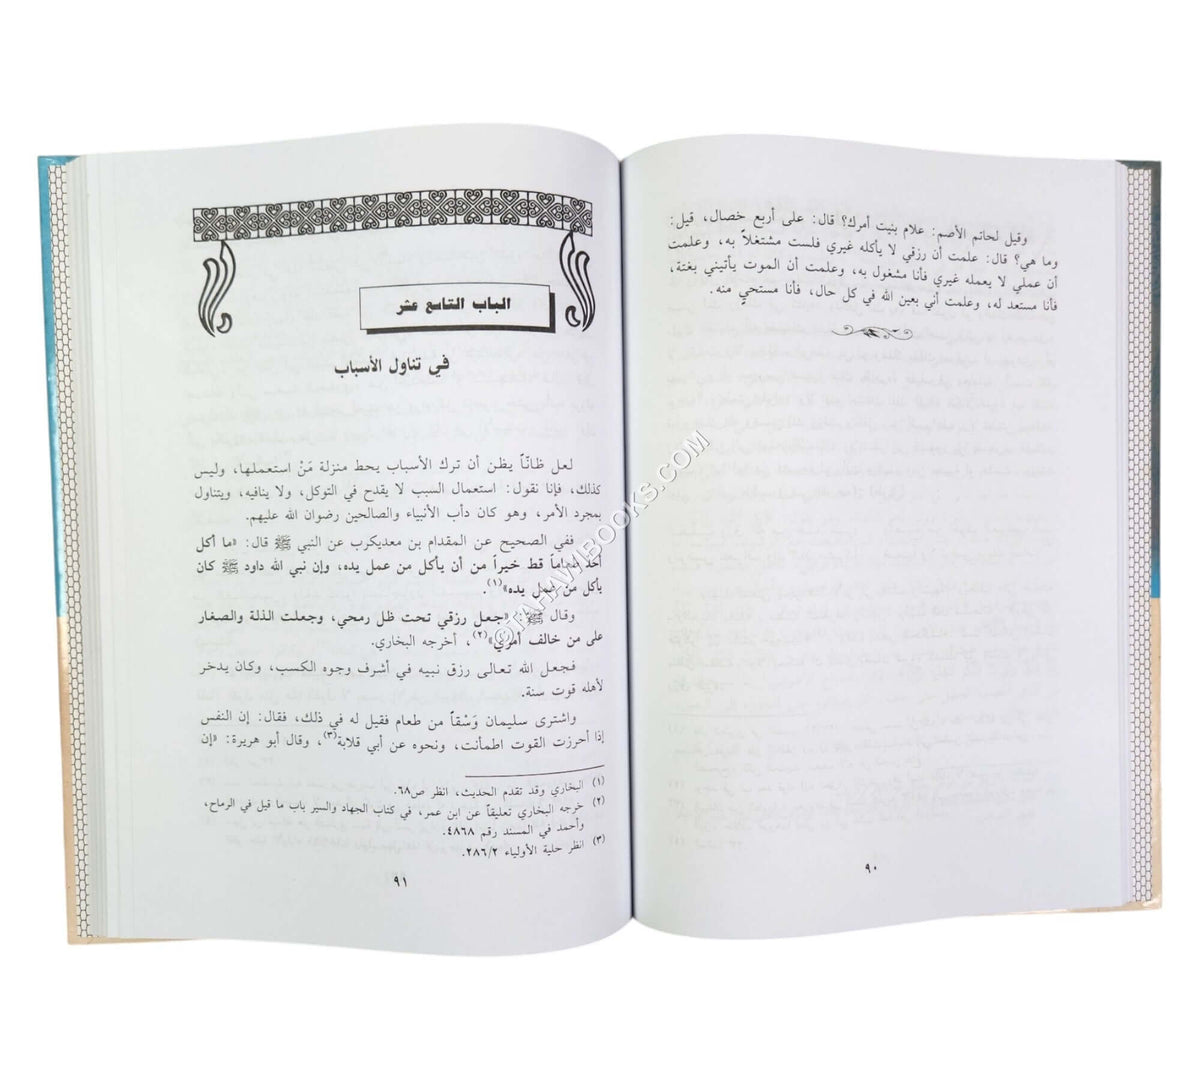 وقيل لحاتم الأصم: علام بنيت أمرك؟ قال: على أربع خصال، قيل:
وما هي؟ قال: علمت أن رزقي لا يأكله غيري فلست مشتغلاً به، وعلمت
أن عملي لا يعمله غيري فأنا مشغول به، وعلمت أن الموت يأتيني بغتة،
فأنا مستعد له، وعلمت أني بعين الله في كل حال، فأنا مستحيٍ منه.
٩٠
الباب التاسع عشر
في تناول الأسباب
لعل ظانّاً يظن أن ترك الأسباب يحط منزلة مَنْ استعملها، وليس
كذلك، فإنا نقول: استعمال السبب لا يقدح في التوكل، ولا ينافيه، ويتناول
بمجرد الأمر، وهو كان دأب الأنبياء والصالحين رضوان الله عليهم.
ففي الصحيح عن المقدام بن معديكرب عن النبي ﷺ قال: «ما أكل
أحد طعاماً قط خيراً من أن يأكل من عمل يده، وإن نبي الله داود ﷺ كان
يأكل من عمل يده»(١).
وقال ﷺ: «جعل رزقي تحت ظل رمحي، وجعلت الذلة والصغار
على من خالف أمري»(٢)، أخرجه البخاري.
فجعل الله تعالى رزق نبيه في أشرف وجوه الكسب، وكان يدخر
لأهله قوت سنة.
واشترى سليمان وَسْقاً من طعام فقيل له في ذلك، فقال: إن النفس
إذا أحرزت القوت اطمأنت، ونحوه عن أبي قلابة(٣)، وقال أبو هريرة: «إن
(١) البخاري وقد تقدم الحديث، انظر ص٦٨.
(٢) خرجه البخاري تعليقاً عن ابن عمر، في كتاب الجهاد والسير باب ما قيل في الرماح،
وأحمد في المسند رقم ٤٨٦٨.
(٣) انظر حلية الأولياء ٢٨٦/٢.
٩١
©TAHAWIBOOKS.COM